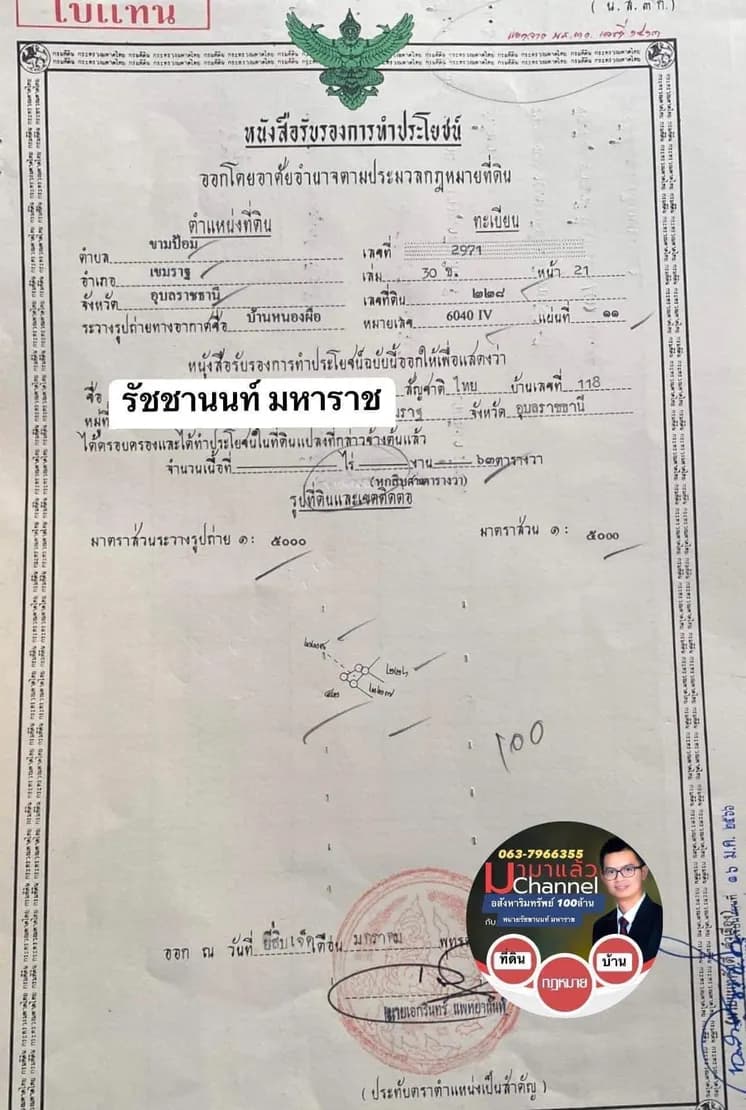 ใบแทน
( น.ส.๓ ก.)
กรมที่ดิน กระทรวงมหาดไทย
หนังสือรับรองการทำประโยชน์
ออกโดยอาศัยอำนาจตามประมวลกฎหมายที่ดิน
ตำแหน่งที่ดิน ทะเบียน
ตำบล ขามป้อม เลขที่ 2971
อำเภอ เขมราฐ เล่ม 30 ข. หน้า 21
จังหวัด อุบลราชธานี เลขที่ดิน ๒๒๘
ระวางรูปถ่ายทางอากาศชื่อ บ้านหนองผือ หมายเลข 6040 IV แผ่นที่ ๑๑
หนังสือรับรองการทำประโยชน์ฉบับนี้ออกให้เพื่อแสดงว่า
ชื่อ รัชชานนท์ มหาราช สัญชาติ ไทย บ้านเลขที่ 118
หมู่ที่ จังหวัด อุบลราชธานี
ได้ครอบครองและได้ทำประโยชน์ในที่ดินแปลงที่กล่าวข้างต้นแล้ว
จำนวนเนื้อที่ ไร่ งาน ๖๓ ตารางวา
(หกสิบสามตารางวา)
รูปที่ดินและเขตติดต่อ
มาตราส่วนระวางรูปถ่าย ๑: ๕๐๐๐ มาตราส่วน ๑ : ๕๐๐๐
๒๒๗
100
063-7966355
มามาแล้ว
Channel
อสังหาริมทรัพย์ 100ล้าน
กับ ทนายรัชชานนท์ มหาราช
ที่ดิน
บ้าน
กฎหมาย
ออก ณ วันที่ ยี่สิบเจ็ด เดือน มกราคม
นายเอกรินทร์ แพทยานันท์
(ประทับตราตำแหน่งเป็นสำคัญ)
๑๖ ม.ค. ๒๕๖๖